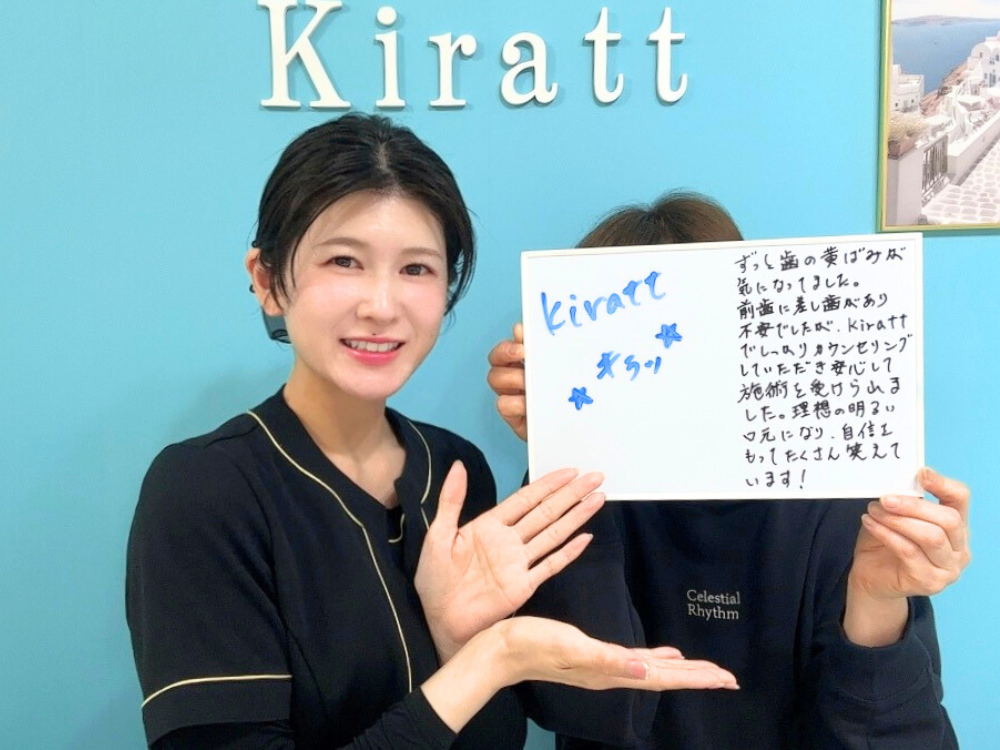 Kiratt
kiratt
キラッ
ずっと歯の黄ばみが
気になってました。
前歯に差し歯があり
不安でしたが、Kiratt
でしっかりカウンセリング
していただき安心して
施術を受けられま
した。理想の明るい
口元になり、自信を
もってたくさん笑えて
います!
Celestial
Rhythm